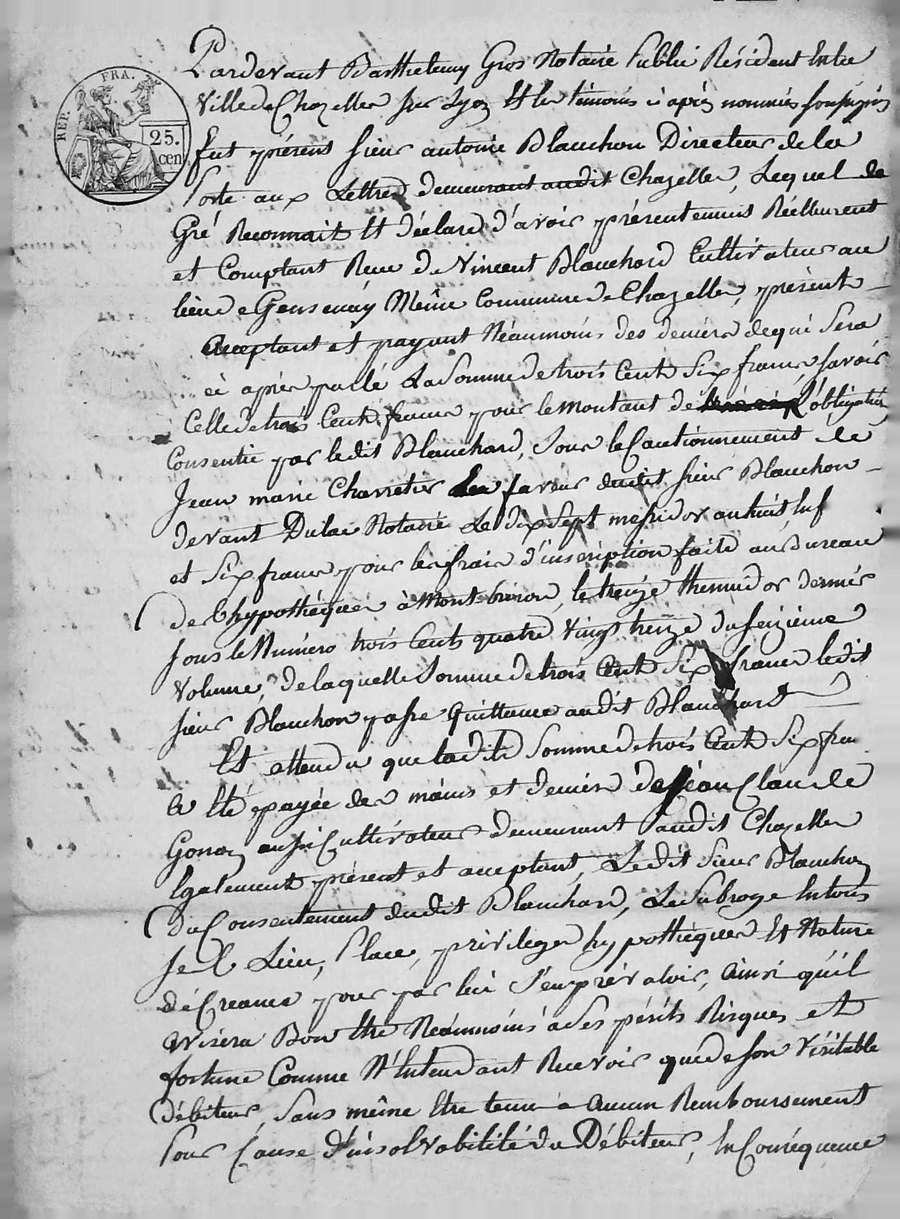 REP. FRA.
25.
cen
Pardevant Barthelemy Gros Notaire Public Résident En la
Ville de Chazelles sur Lyon Et les témoins ci après nommés soussignés
fut présent sieur antoine Blanchon Directeur de la
Poste aux Lettres demeurant audit Chazelles, Lequel de
Gré Reconnait Et déclare d'avoir présentement Réellement
et Comptant Reçu de Vincent Blanchard Cultivateur au
lieu de Même Commune de Chazelles, présent
acceptant et payant Néaumoins des deniers de qui Sera
ci après parlé La Somme de trois Cent Six francs savoir
Celle de trois Cent francs pour le montant de L'obligation
Consentie par ledit Blanchard, Sous le Cautionnement de
Jean marie Charretier En faveur dudit sieur Blanchon
devant Dulac Notaire Le dix Sept messidor an huit
et Six francs pour les frais d'inscription faite au Bureau
des hypothèques à Montbrison, le treize thermidor dernier
sous le Numéro trois Cents quatre Vingt treize du seizième
Volume, de laquelle Somme de trois Cent Six francs ledit
sieur Blanchon passe Quittance audit Blanchard
Et attendu que ladite Somme de trois Cent Six fra
a Eté payée des mains et deniers de Jean Claude
Gonon aussi Cultivateur demeurant audit Chazelles
Egalement présent et acceptant, Ledit Sieur Blanchon
du Consentement dudit Blanchard, Le Subroge En tous
ses Lieu, Place, privileges hypothèques Et Nature
de Créance pour par lui s'en prévaloir, ainsi qu'il
avisera Bon Etre Néaumoins a Ses périls Risques et
fortune Comme N'Entendant Recevoir que de son Véritable
débiteur, Sans même Etre tenu a aucun Remboursement
Pour Cause d'insolvabilité du Débiteur, En Conséquence